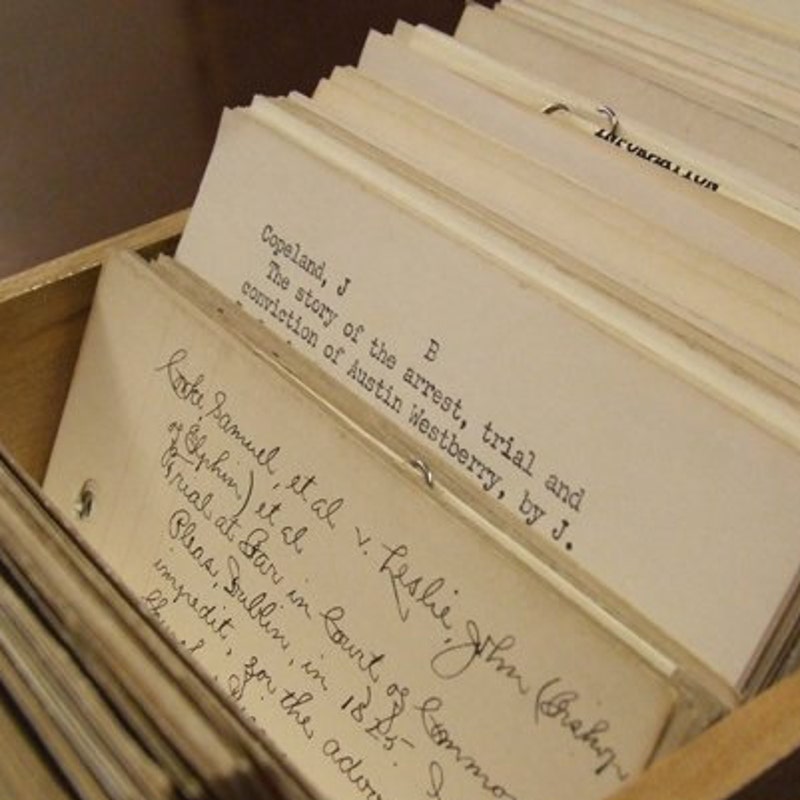 INFORMATION
Copeland, J
B
The story of the arrest, trial and
conviction of Austin Westberry, by J.
Cooke, Samuel, et al v. Leslie, John (Bishop
of Elphin) et al
Trial at Bar in Court of Common
Pleas, Dublin, in 1825.
impedit, for the advow